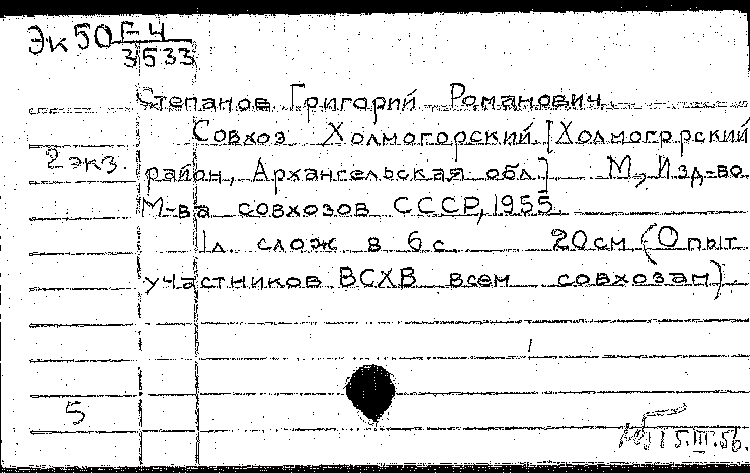 Эк50 Г-4
3533
Степанов Григорий Романович
Совхоз Холмогорский. [Холмогорский
2 экз.
район, Архангельская обл.] М., Изд-во
М-ва совхозов СССР, 1955
1 л слож в 6 с. 20 см (Опыт
участников ВСХВ всем совхозам).
5
5.III.56.